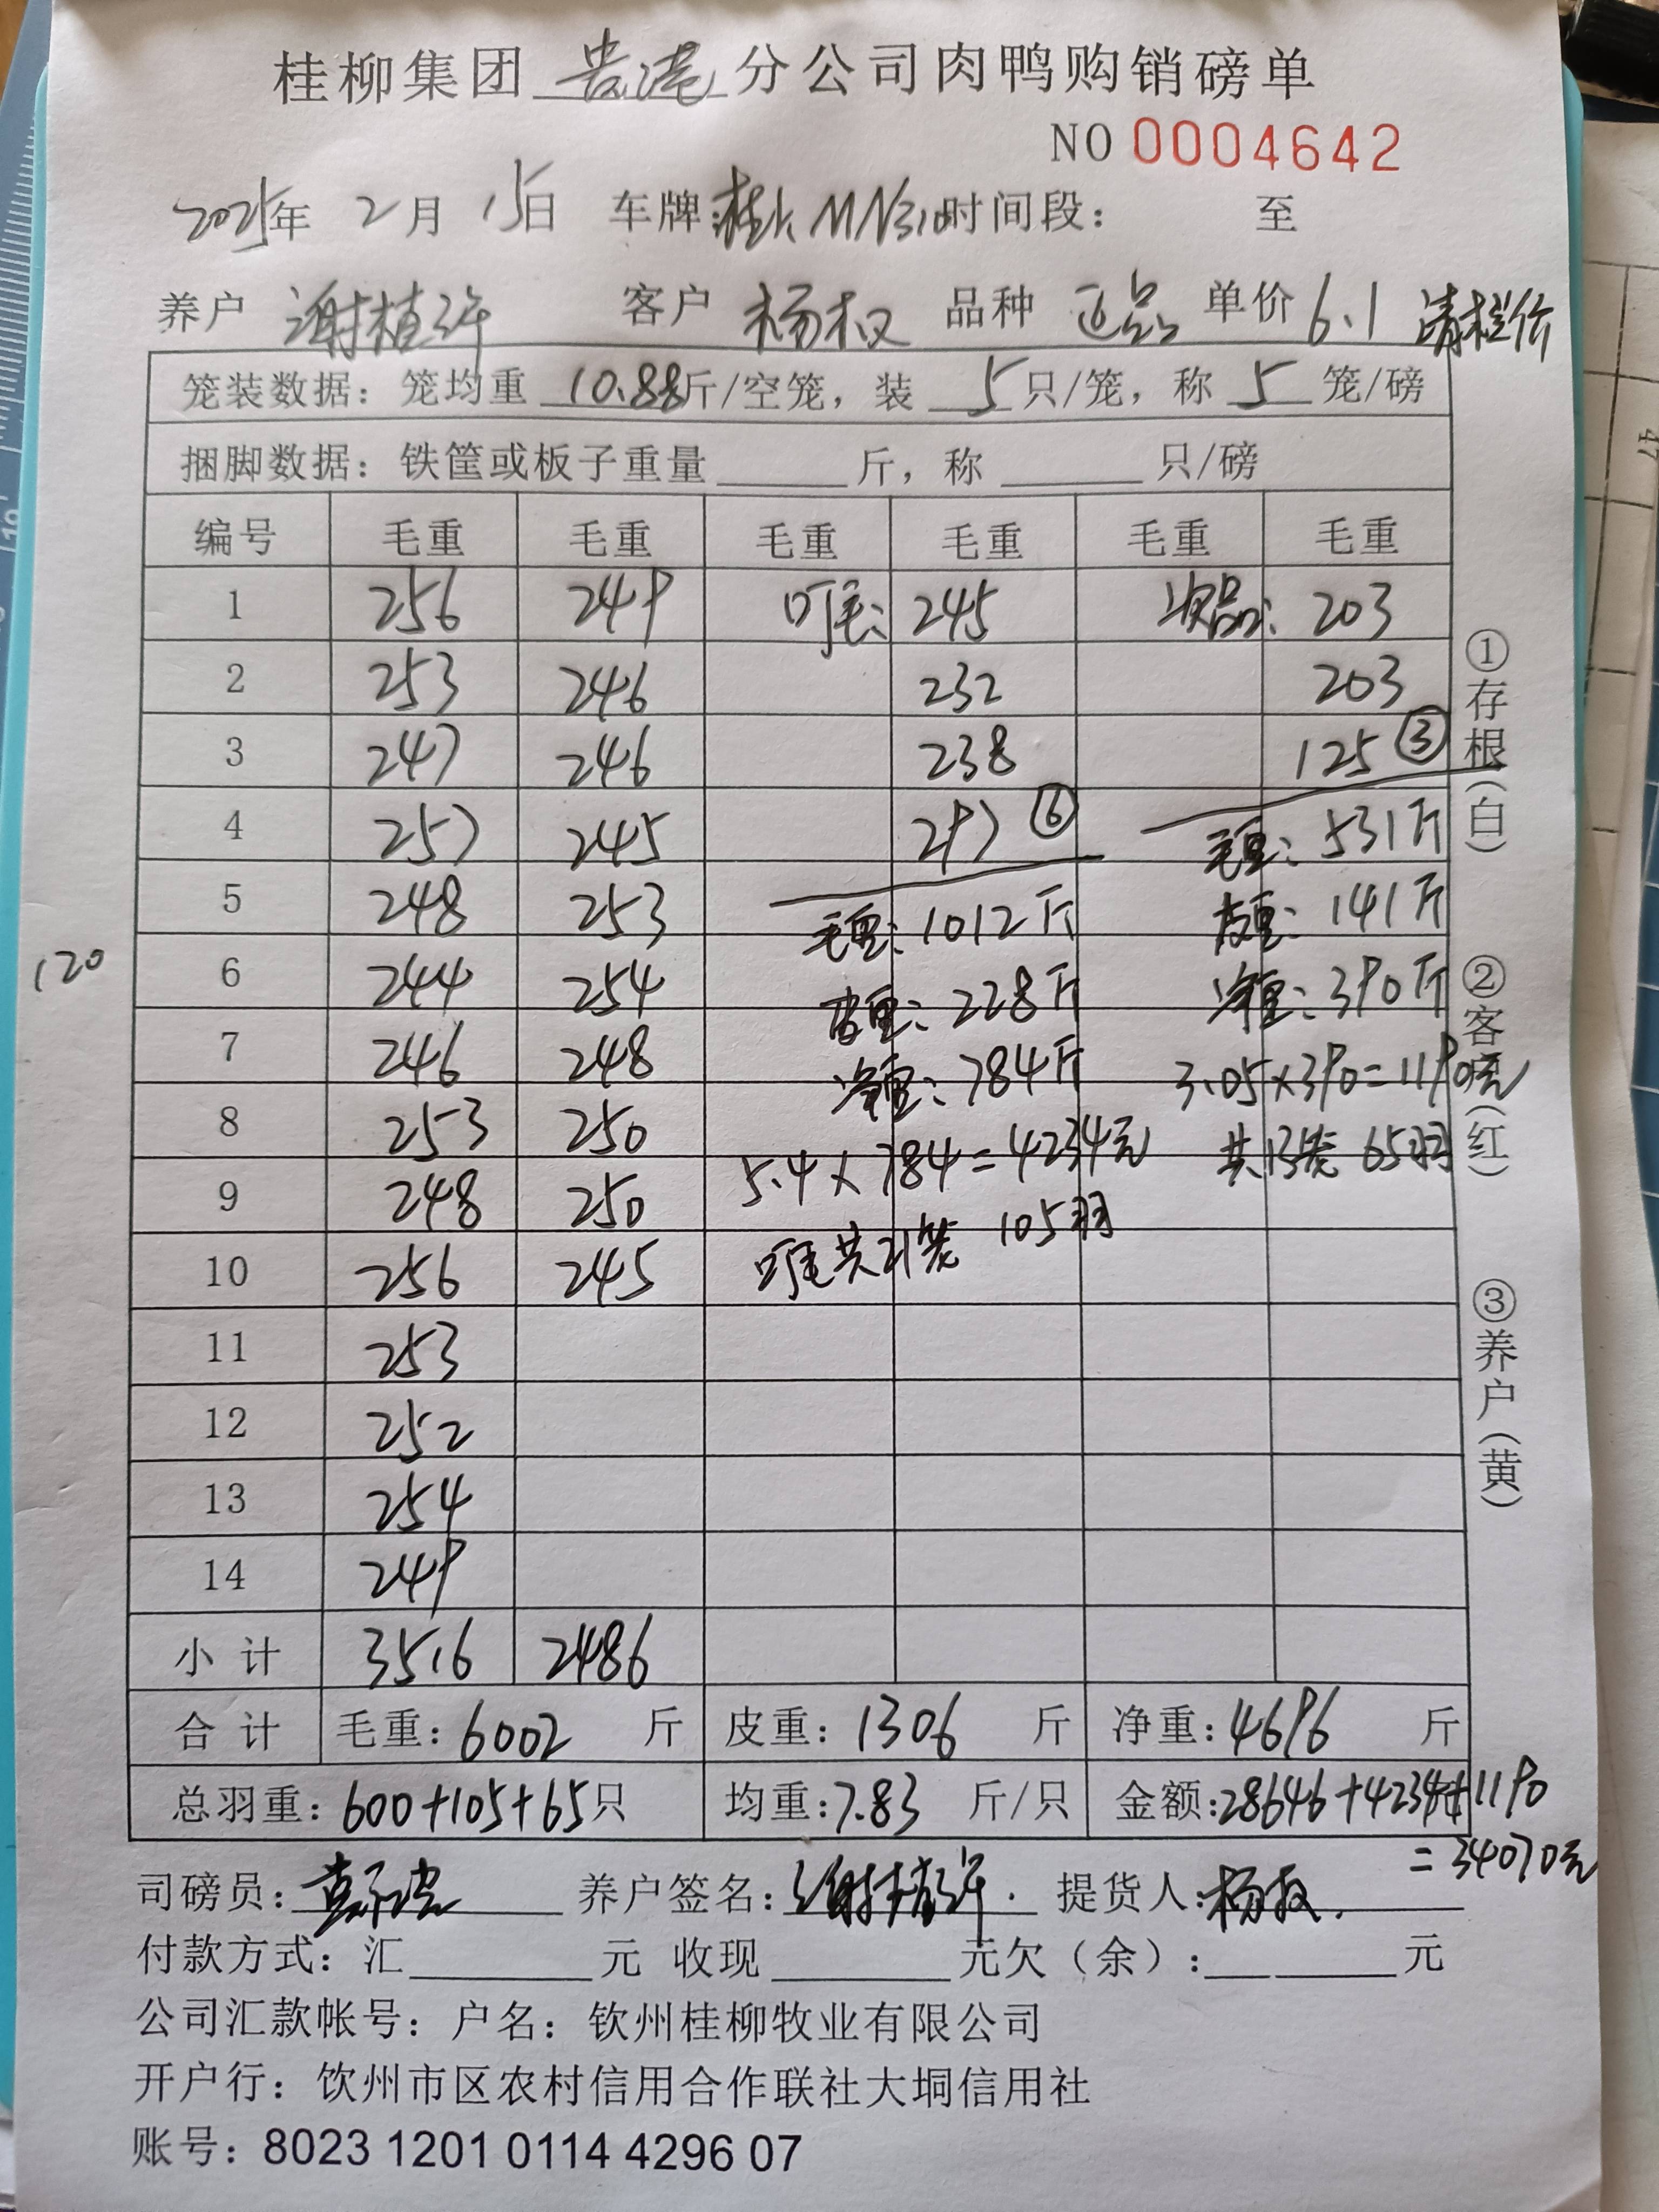 桂柳集团 贵港 分公司肉鸭购销磅单
NO 0004642
2025年 2月 15日 车牌: 时间段: 至
养户 谢植许 客户 杨权 品种 正品 单价 6.1 清栏价
笼装数据: 笼均重 10.88斤/空笼, 装 5 只/笼, 称 5 笼/磅
捆脚数据: 铁筐或板子重量 斤, 称 只/磅
编号 毛重 毛重 毛重 毛重 毛重 毛重
1 256 249 叮毛: 245 次品: 203
2 253 246 232 203
3 247 246 238 125 ③
4 257 245 297 ⑥ 毛重: 531斤
5 248 253 毛重: 1012斤 皮重: 141斤
6 244 254 皮重: 228斤 净重: 390斤
7 246 248 净重: 784斤 3.05×390=1190元
8 253 250 5.4×784=4234元 共13笼 65羽
9 248 250 叮毛共21笼 105羽
10 256 245
11 253
12 252
13 254
14 249
小计 3516 2486
合计 毛重: 6002 斤 皮重: 1306 斤 净重: 4696 斤
总羽重: 600+105+65只 均重: 7.83 斤/只 金额: 28646+4234+1190
=34070元
司磅员: 养户签名: 谢植许 提货人: 杨权
付款方式: 汇 元 收现 元欠(余): 元
公司汇款帐号: 户名: 钦州桂柳牧业有限公司
开户行: 钦州市区农村信用合作联社大垌信用社
账号: 8023 1201 0114 4296 07
120
①存根(白)
②客户(红)
③养户(黄)
47